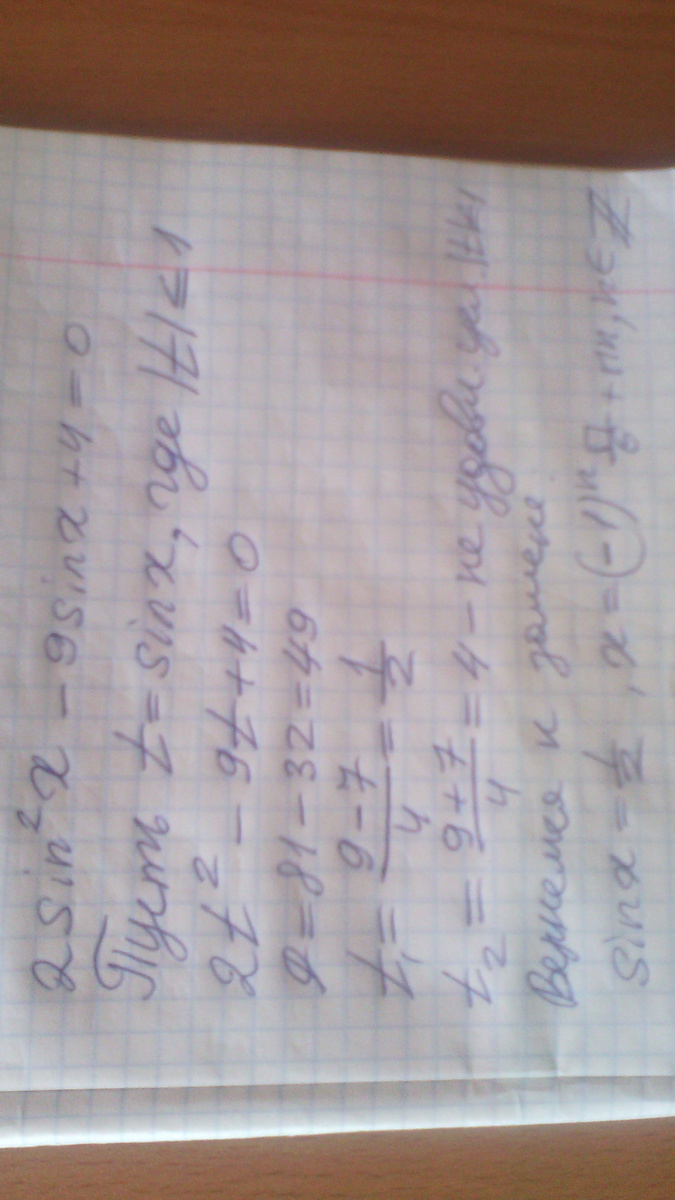 2sin²x - 9sinx + 4 = 0
Пусть t = sinx, где |t| ≤ 1
2t² - 9t + 4 = 0
D = 81 - 32 = 49
t₁ = (9-7)/4 = 1/2
t₂ = (9+7)/4 = 4 - не удовл. усл. |t|≤1
Вернемся к замене
sinx = 1/2, x = (-1)ⁿ π/6 + πn, n ∈ Z